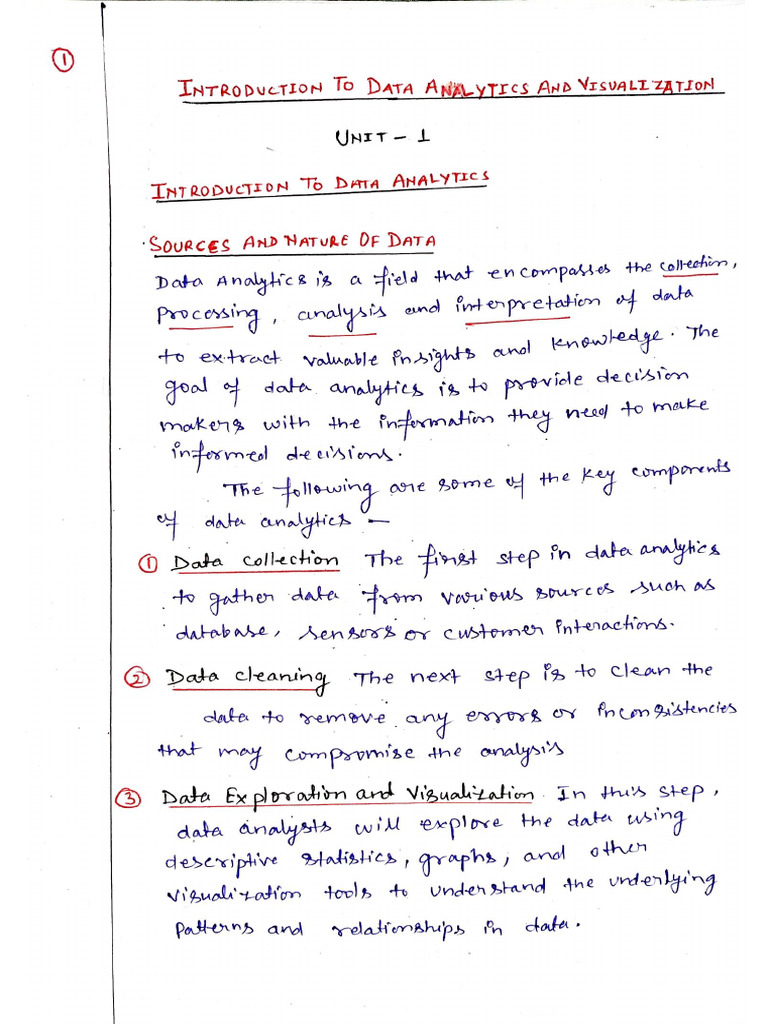 1
INTRODUCTION TO DATA ANALYTICS AND VISUALIZATION
UNIT - 1
INTRODUCTION TO DATA ANALYTICS
SOURCES AND NATURE OF DATA
Data Analytics is a field that encompasses the collection,
processing, analysis and interpretation of data
to extract valuable insights and knowledge. The
goal of data analytics is to provide decision
makers with the information they need to make
informed decisions.
The following are some of the key components
of data analytics —
1 Data collection The first step in data analytics
to gather data from various sources such as
database, sensors or customer interactions.
2 Data cleaning The next step is to clean the
data to remove any errors or inconsistencies
that may compromise the analysis
3 Data Exploration and Visualization. In this step,
data analysts will explore the data using
descriptive statistics, graphs, and other
visualization tools to understand the underlying
patterns and relationships in data.